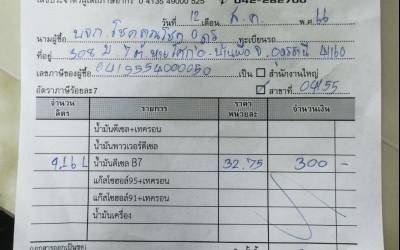 เลขประจำตัวผู้เสียภาษีอากร 0 4135 49000 525
042-282700
วันที่ 12 เดือน ส.ค. พ.ศ. 66
นามผู้ซื้อ บจก. โชคคูณโชค อุดร ทะเบียนรถ
ที่อยู่ 308 ม.7 ต. อ. บ้านผือ จ. อุดรธานี 41160
เลขภาษีของผู้ซื้อ 0415554000050 เป็น สำนักงานใหญ่
อัตราภาษีร้อยละ7 สาขาที่ 04155
จำนวน ลิตร รายการ ราคา หน่วยละ จำนวนเงิน
น้ำมันดีเซล+เทครอน
น้ำมันพาวเวอร์ดีเซล
9.16 L น้ำมันดีเซล B7 32.75 300 -
แก๊สโซฮอล์95+เทครอน
แก๊สโซฮอล์91+เทครอน
น้ำมันเครื่อง